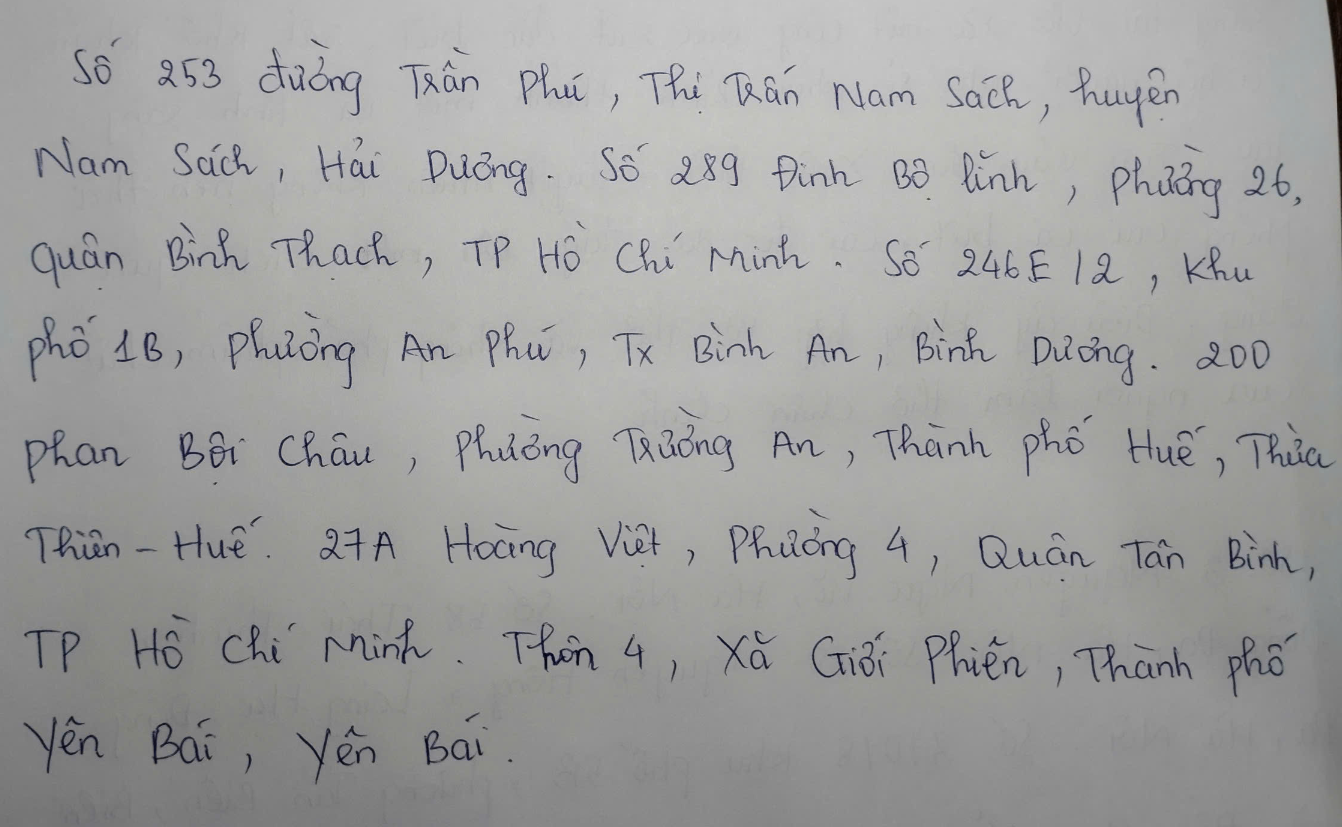 Số 253 đường Trần Phú, Thị Trấn Nam Sách, huyện
Nam Sách, Hải Dương. Số 289 Đinh Bộ lĩnh, phường 26,
quận Bình Thạch, TP Hồ Chí Minh. Số 246E/2, Khu
phố 1B, phường An Phú, Tx Bình An, Bình Dương. 200
phan Bội Châu, phường Trường An, Thành phố Huế, Thừa
Thiên - Huế. 27A Hoàng Việt, Phường 4, Quận Tân Bình,
TP Hồ Chí Minh. Thôn 4, Xã Giới Phiên, Thành phố
Yên Bái, Yên Bái.